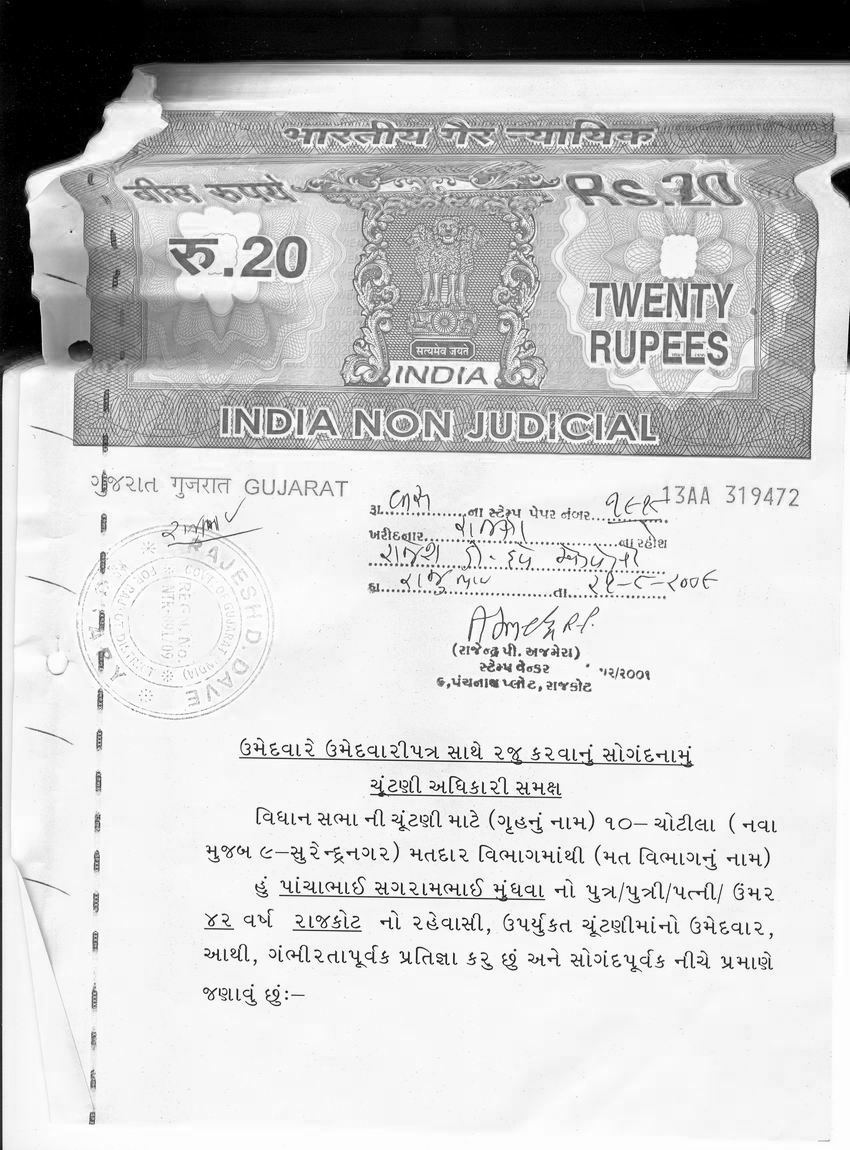 भारतीय गैर न्यायिक
बीस रुपये
Rs.20
रु.20
TWENTY
RUPEES
सत्यमेव जयते
INDIA
INDIA NON JUDICIAL
ગુજરાત गुजरात GUJARAT
13AA 319472
રૂા. ના સ્ટેમ્પ પેપર નંબર
ખરીદનાર ના રહીશ
તા
RAJESH D. DAVE
(રાજેન્દ્ર પી. અજમેરા)
સ્ટેમ્પ વેન્ડર
૬,પંચનાથ પ્લોટ,રાજકોટ
ઉમેદવારે ઉમેદવારીપત્ર સાથે રજુ કરવાનું સોગંદનામું
ચૂંટણી અધિકારી સમક્ષ
વિધાન સભા ની ચૂંટણી માટે (ગૃહનું નામ) ૧૦– ચોટીલા ( નવા
મુજબ ૯–સુરેન્દ્રનગર) મતદાર વિભાગમાંથી (મત વિભાગનું નામ)
હું પાંચાભાઈ સગરામભાઈ મુંધવા નો પુત્ર/પુત્રી/પત્ની/ ઉંમર
૪૨ વર્ષ રાજકોટ નો રહેવાસી, ઉપર્યુકત ચૂંટણીમાંનો ઉમેદવાર,
આથી, ગંભીરતાપૂર્વક પ્રતિજ્ઞા કરુ છું અને સોગંદપૂર્વક નીચે પ્રમાણે
જણાવું છુંઃ–